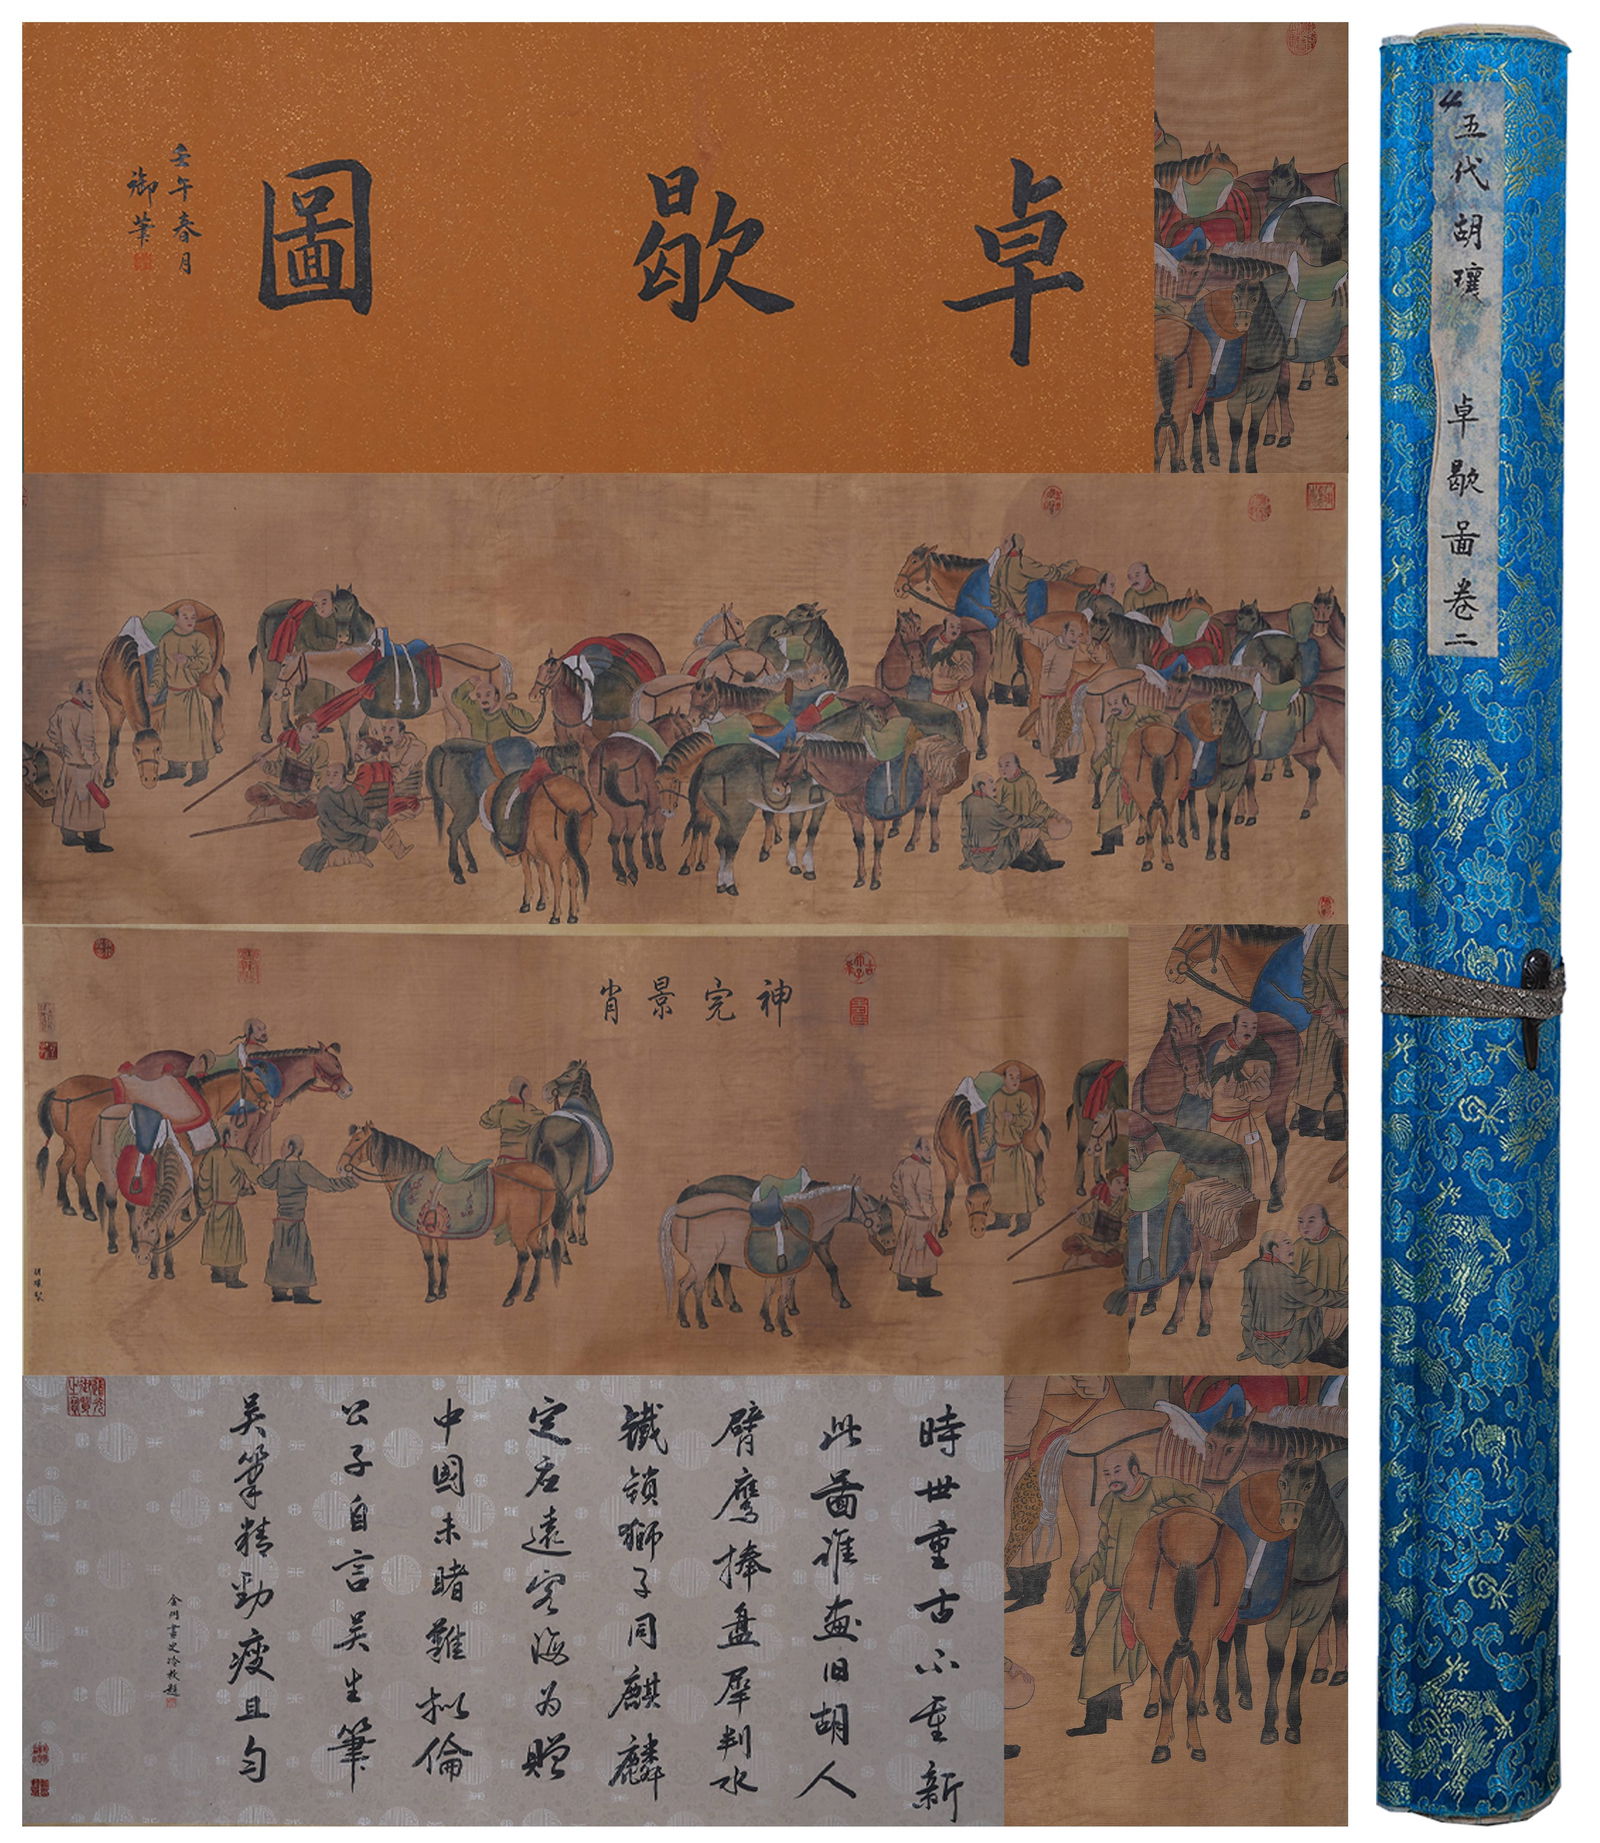 卓歇圖
壬午春月
御筆
神完景肖
胡瓌製
時世重古不重新
此畵誰畫旧胡人
臂鹰捧盘犀判水
鐵锁獅子同麒麟
定应遠客海为贈
中國未睹難拟倫
公子自言吴生筆
吴筆精勁瘦且匀
金門畫史冷枚題
五代胡瓌 卓歇畵卷二